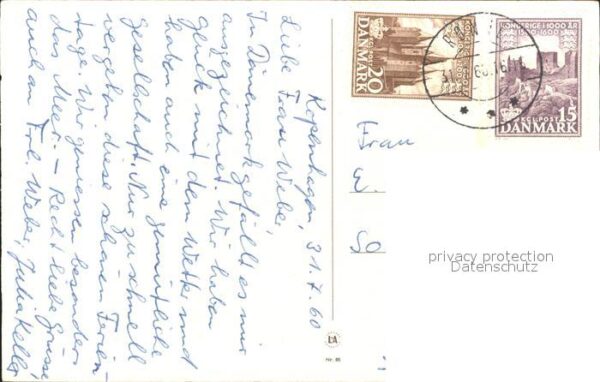 Kopenhagen, 31.7.60
Liebe Frau Weber,
In Dänemark gefällt es mir
ausgezeichnet. Wir haben
Glück mit dem Wetter und
haben auch eine gemütliche
Gesellschaft. Nur zu schnell
vergehen diese schönen Ferien-
tage. Wir geniessen besonders
das Meer. – Recht liebe Grüsse,
auch an Frl. Weber, Julia Keller
KONGERIGE I 1000 ÅR
DANMARK
20
KONGERIGE I 1000 ÅR
1500-1600
KGL. POST 15
DANMARK
Frau
E.
So
privacy protection
Datenschutz
Nr.